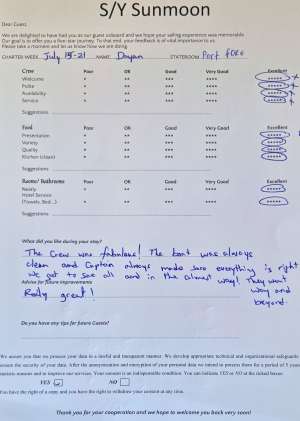 S/Y Sunmoon
Dear Guest
We are delighted to have had you as our guest onboard and we hope your sailing experience was memorable
Our goal is to offer you a five-star journey. To that end, your feedback is of vital importance to us.
Please take a moment and let us know how we are doing
CHARTER WEEK July 15-21 NAME STATEROOM Port fore
Crew Poor OK Good Very Good Excellent
Welcome * ** *** **** *****
Polite * ** *** **** *****
Availability * ** *** **** *****
Service * ** *** **** *****
Suggestions
Food Poor OK Good Very Good Excellent
Presentation * ** *** **** *****
Variety * ** *** **** *****
Quality * ** *** **** *****
Kitchen (clean) * ** *** **** *****
Suggestions
Rooms/ Bathrooms Poor OK Good Very Good Excellent
Neatly * ** *** **** *****
Hotel Service
(Towels, Bed...) * ** *** **** *****
Suggestions
What did you like during your stay?
The Crew was fabulous! The boat was always
clean and Captain always made sure everything is right
we got to see all and in the calmest way! They went
Advise for future improvements
way and
Really great!
beyond.
Do you have any tips for future Guests?
We assure you that we process your data in a lawful and transparent manner. We develop appropriate technical and organizational safeguards
ensure the security of your data. After the anonymization and encryption of your personal data we intend to process them for a period of 5 years
statistic reasons and to improve our services. Your consent is an indispensable condition. You can indicate YES or NO at the ticked boxes:
YES NO
You have the right of a copy and you have the right to withdraw your consent at any time.
Thank you for your cooperation and we hope to welcome you back very soon!